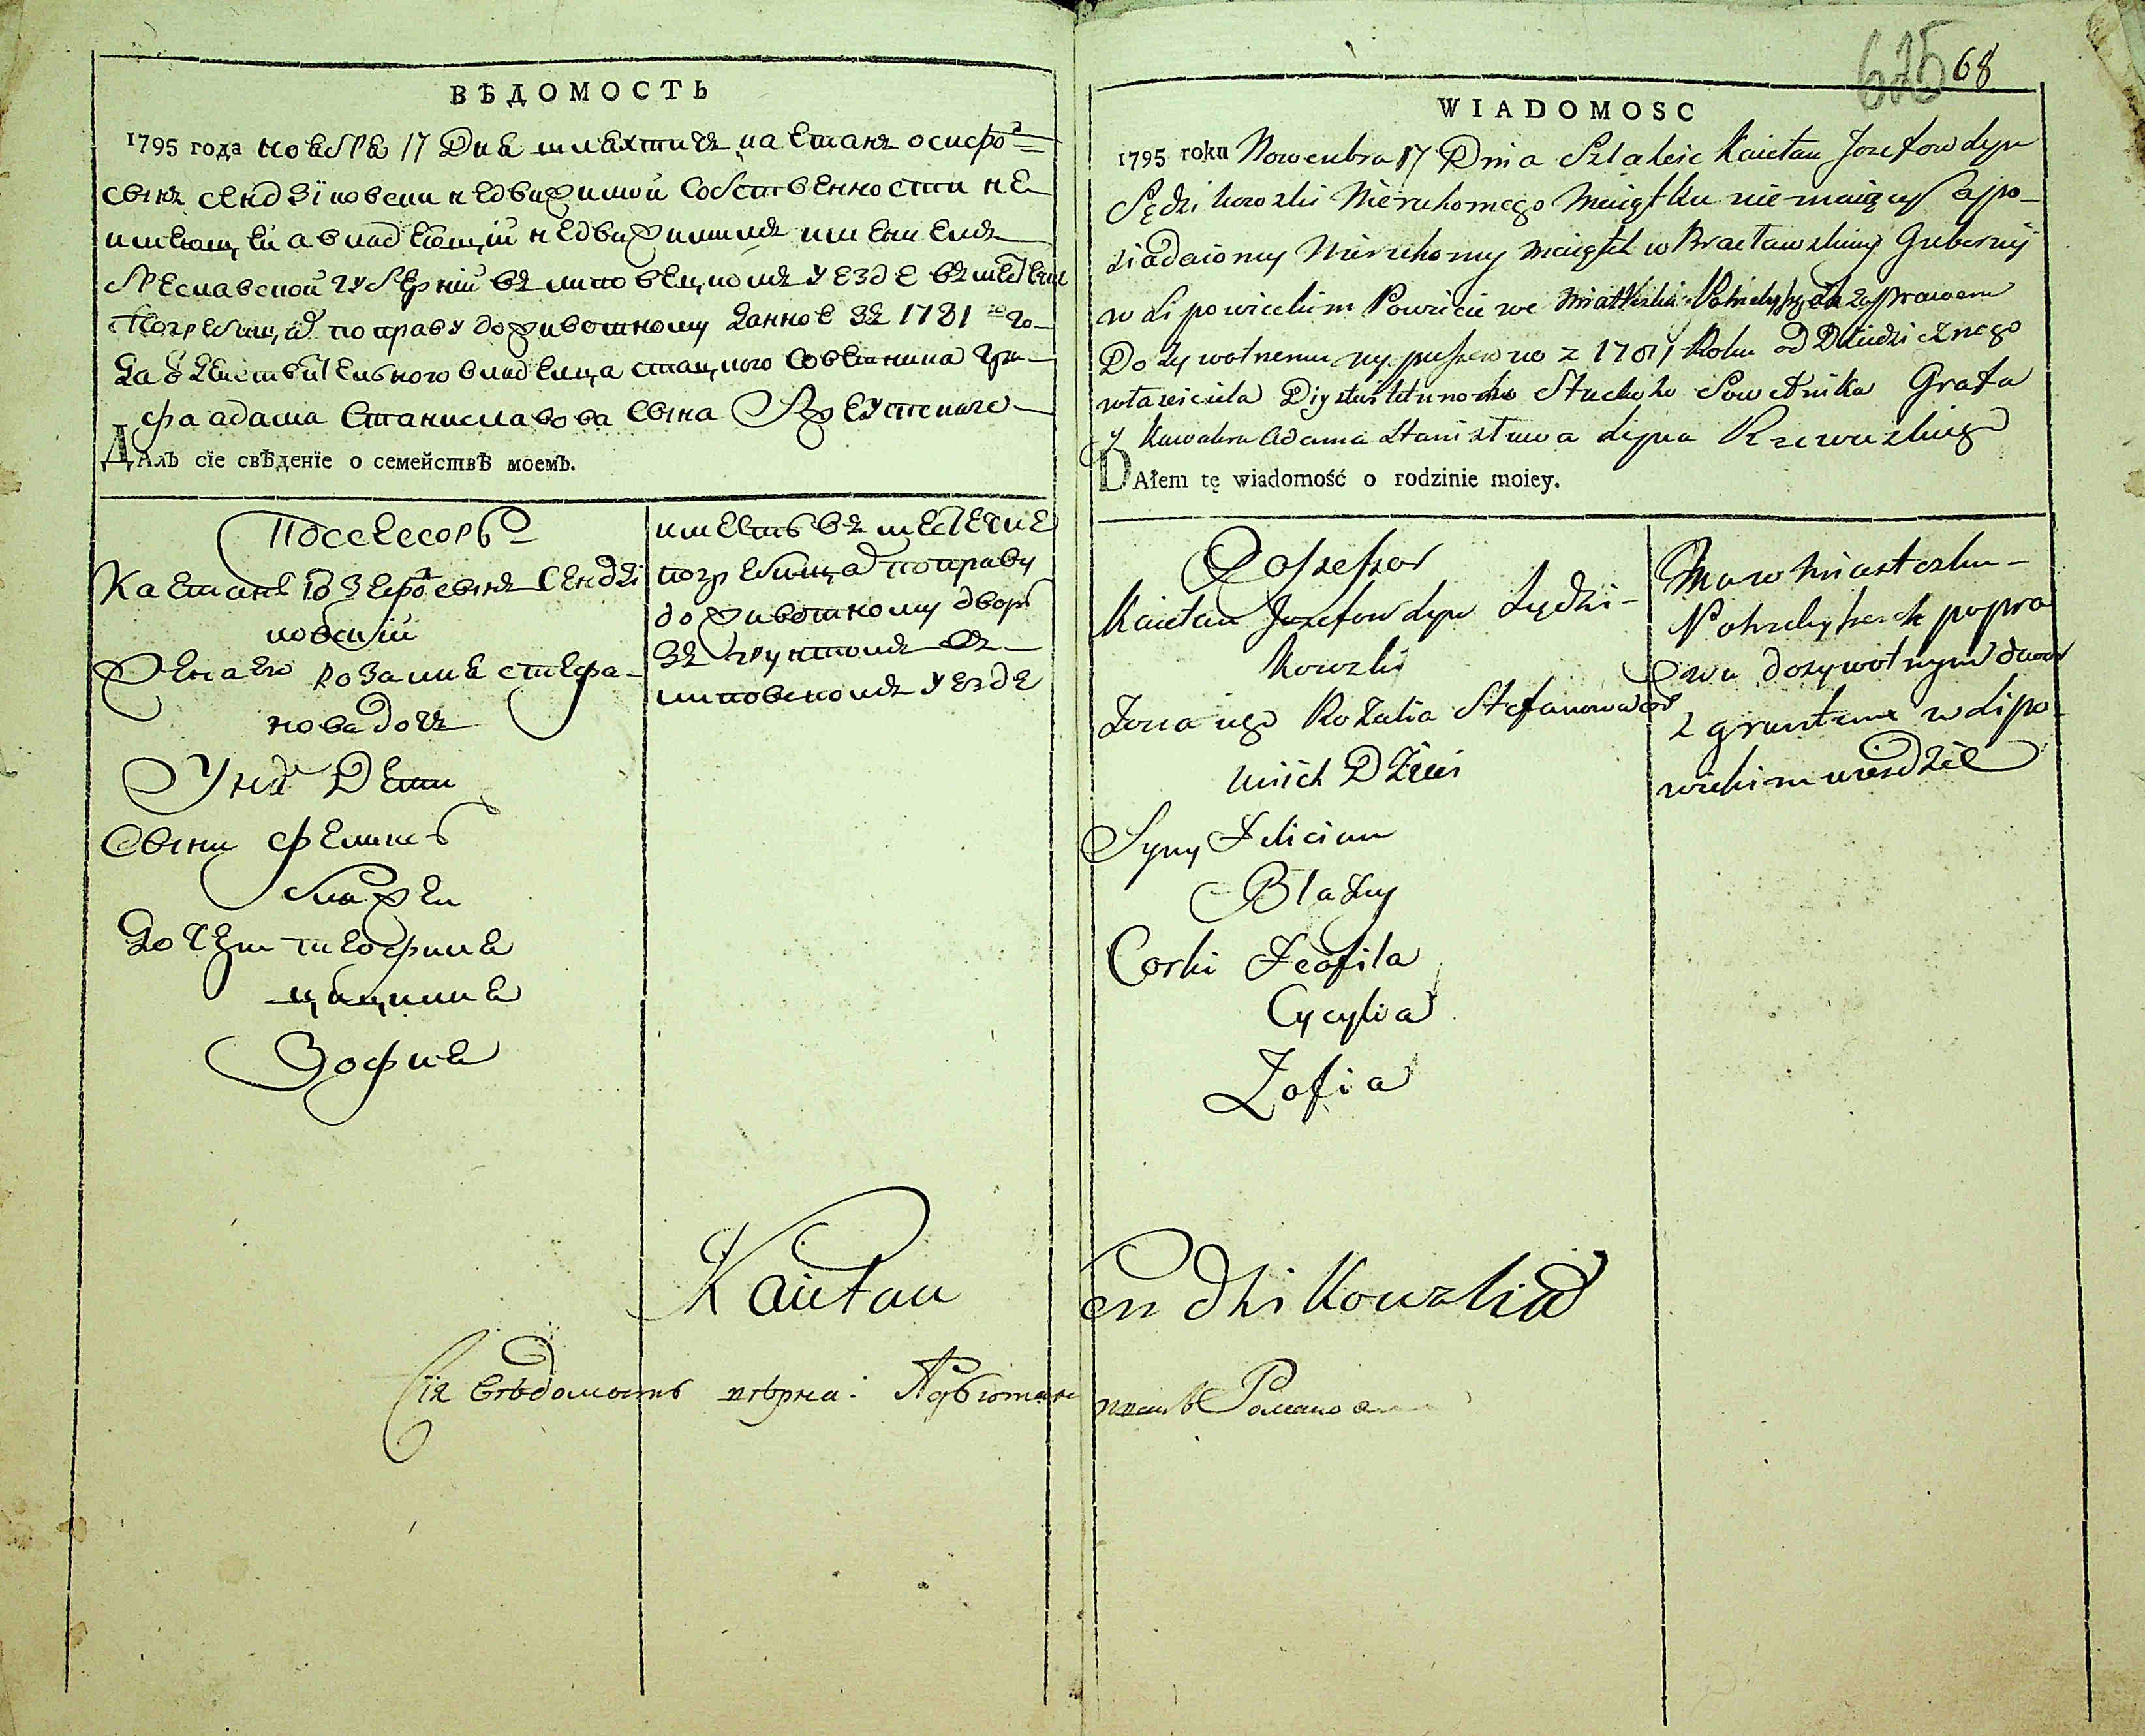 ВѢДОМОСТЬ
1795 года ноября 17 Дня шляхтичъ каетанъ осифо
сынъ сендзїковски недвижимой собственности не
имеющей а владеющий недвижимимъ имениемъ
брацлавской губернїи въ липовецкомъ уезде въ местечке
погребищах по праву доживотному данное въ 1781 го
да действителного владелца статского советника гра
фа адама станиславова сына Ржевуского
ДАлъ сїе свѣденїе о семействѣ моемъ.
Посесоръ
Каетанъ Іозефовъ сынъ Сендзи
ковский
Жена его розалия стефа-
нова дочъ
У них Дети
Сыны фелициянъ
блажей
Дочери теофиля
цицилия
Зофия
имеетъ въ местечке
погребищах по праву
доживотному дворъ
зъ грунтомъ въ
липовскомъ уезде
625 68
WIADOMOSC
1795 roku Nowembra 17 Dnia Szlahcic Kaietan Jozefow syn
Sędzikowski Nieruhomego Maiątku nie maiący a po-
siadaiący Nieruhomy maiątek w Bracławskiey Gubernij
w Lipowieckim Powiecie we Miasteczku Pohrebyszczach za Prawem
Dożywotnemu wypuszczone z 1781 Roku od Dziedzicznego
własciciela Dyistwitelnoho Stackoho Sowetnika Grafa
y Kawalera Adama Stanisława syna Rzewuskiego
DAłem tę wiadomość o rodzinie moiey.
Possessor
Kaietan Jozefow syn Sędzi-
kowski
Zona iego Rozalia Stefanowa
u nich Dzieci
Syny Felician
Blazey
Corki Teofila
Cycylia
Zofia
Ma w miasteczku
Pohrebyszczach popra
wu dozywotnym dwor
z gruntem w Lipo
wickim uiezdzie
Kaietan Sendzikowski
Сїя вѣдомость вѣрна: